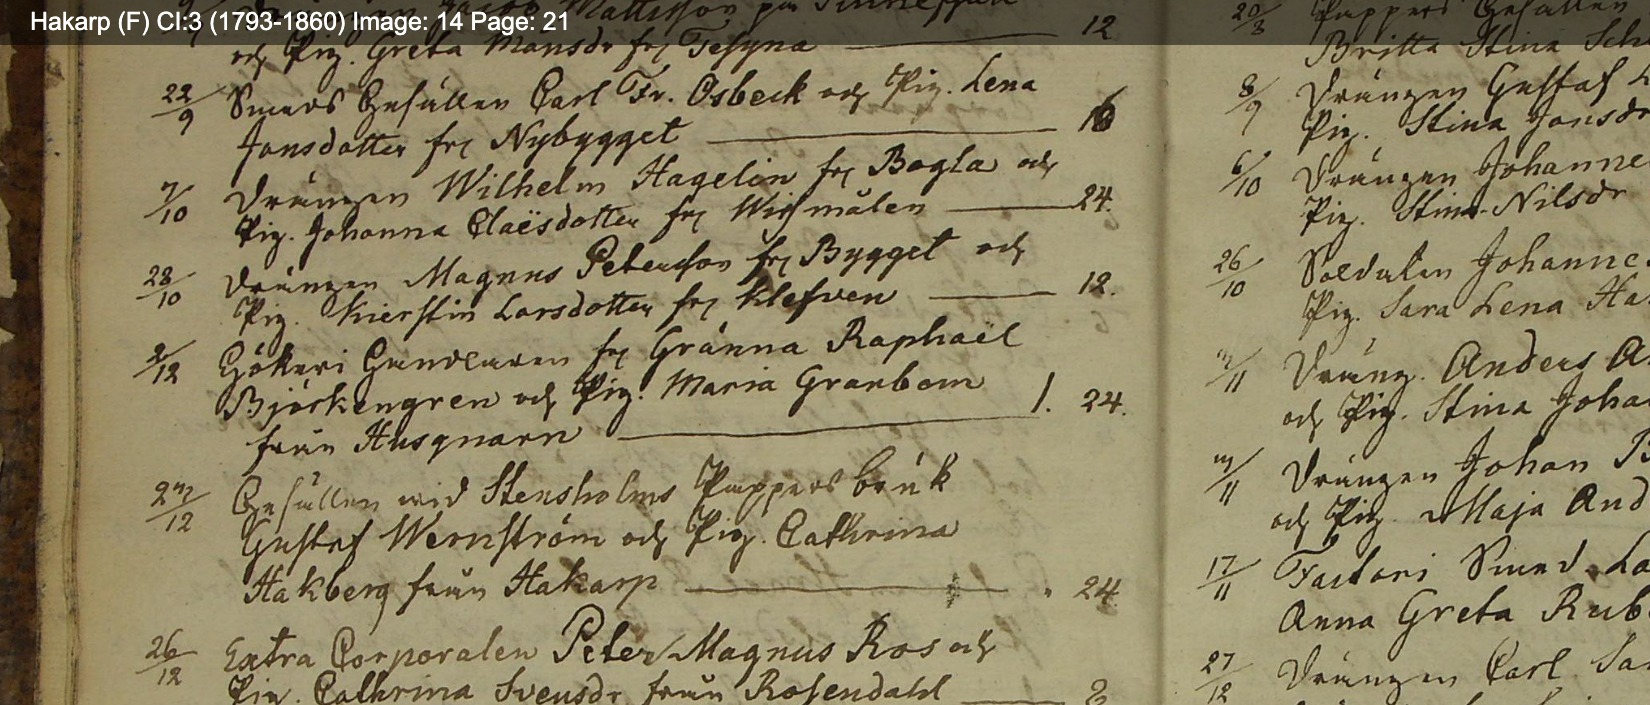 Hakarp (F) CI:3 (1793-1860) Image: 14 Page: 21
och Pig. Greta Månsdr frå Tesyna 12
22/9 Smeds Gesällen Carl Fr. Osbeck och Pig. Lena
Jonsdotter frå Nybygget 16
7/10 Drängen Wilhelm Hagelin frå Bogla och
Pig. Johanna Claësdotter frå 24.
28/10 Drängen Magnus Peterson frå Bygget och
Pig. Kierstin Larsdotter frå Klefven 12.
2/12 Gunvearen frå Gränna Raphaël
Björkengren och Pig. Maria Granbom
från Husqnarn 1. 24.
27/12 Gesällen wid Stensholms Pappers bruk
Gustaf Wernström och Pig. Cathrina
Hakberg från Hakarp 24
26/12 Extra Corporalen Peter Magnus Ros och
Pig. Cathrina Svensdr från Rosendahl
20/3 Pappers Gesällen
Britta Stina
8/9 Drängen Gustaf
Pig. Stina Jonsdr
6/10 Drängen Johanne
Pig. Stina Nilsdr
26/10 Soldaten Johanne
Pig. Sara Lena Ha
Dräng. Anders A
och Pig. Stina Joha
Drängen Johan
och Pig. Maja And
17/11 Factori Smed La
Anna Greta Rub
27/12 Drängen Carl